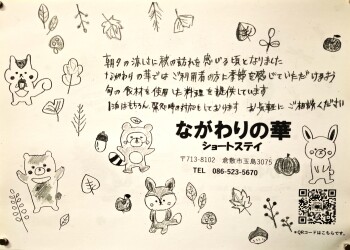 朝夕の涼しさに秋の訪れを感じる頃となりました
ながわりの華では ご利用者の方に季節を感じていただけるよう
旬の食材を使用した料理を提供しています
1泊はもちろん、緊急時の対応もしております お気軽に ご相談ください
ながわりの華
ショートステイ
〒713-8102 倉敷市玉島3075
TEL 086-523-5670
*QRコードはこちらです。